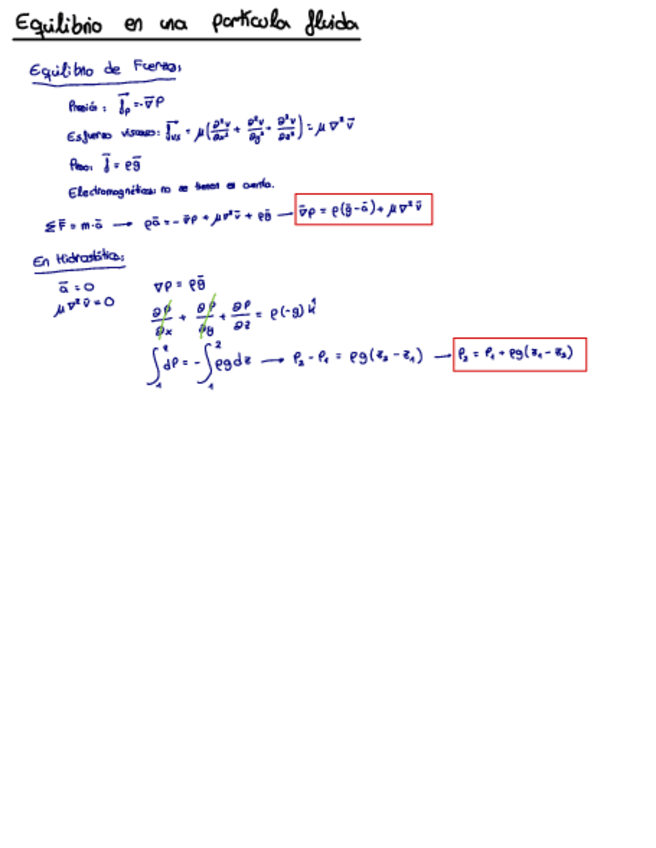 Equilibrio en una partícula fluida
Equilibrio de Fuerzas:
Presión: f⃗p = -∇⃗P
Esfuerzo viscoso: f⃗vis = μ(∂²v/∂x² + ∂²v/∂y² + ∂²v/∂z²) = μ∇²v⃗
Peso: f⃗ = ρg⃗
Electromagnéticas: no se tienen en cuenta.
ΣF⃗ = m·a⃗ → ρa⃗ = -∇⃗P + μ∇²v⃗ + ρg⃗ → ∇⃗P = ρ(g⃗ - a⃗) + μ∇²v⃗
En Hidrostática:
a⃗ = 0 ∇P = ρg⃗
μ∇²v⃗ = 0
∂P/∂x + ∂P/∂y + ∂P/∂z = ρ(-g)k̂
∫₁² dP = -∫₁² ρgdz → P₂ - P₁ = ρg(z₂ - z₁) → P₂ = P₁ + ρg(z₁ - z₂)